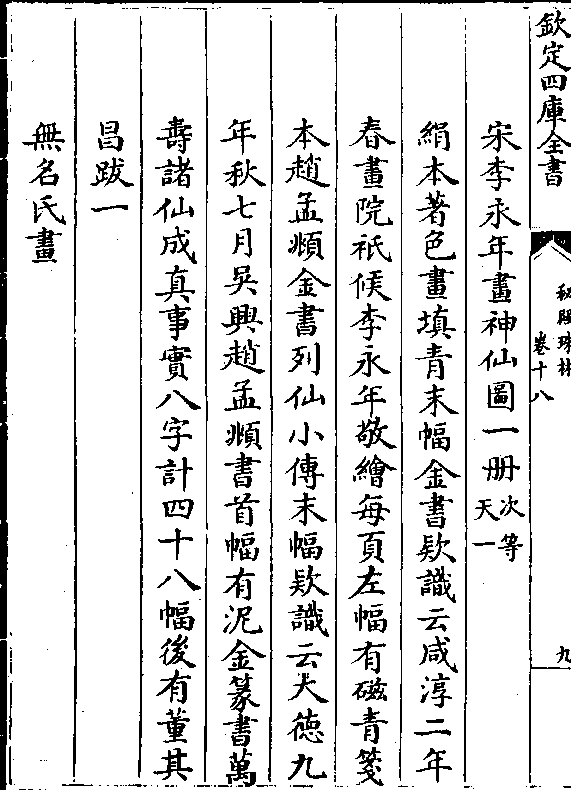 欽定四庫全書
秘殿珠林
卷十八
九
宋李永年畫神仙圖一册次等天一
絹本著色畫填青末幅金書欵識云咸淳二年
春畫院祇候李永年敬繪每頁左幅有磁青箋
本趙孟頫金書列仙小傳末幅欵識云大德九
年秋七月吳興趙孟頫書首幅有泥金篆書萬
壽諸仙成真事實八字計四十八幅後有董其
昌跋一
無名氏畫